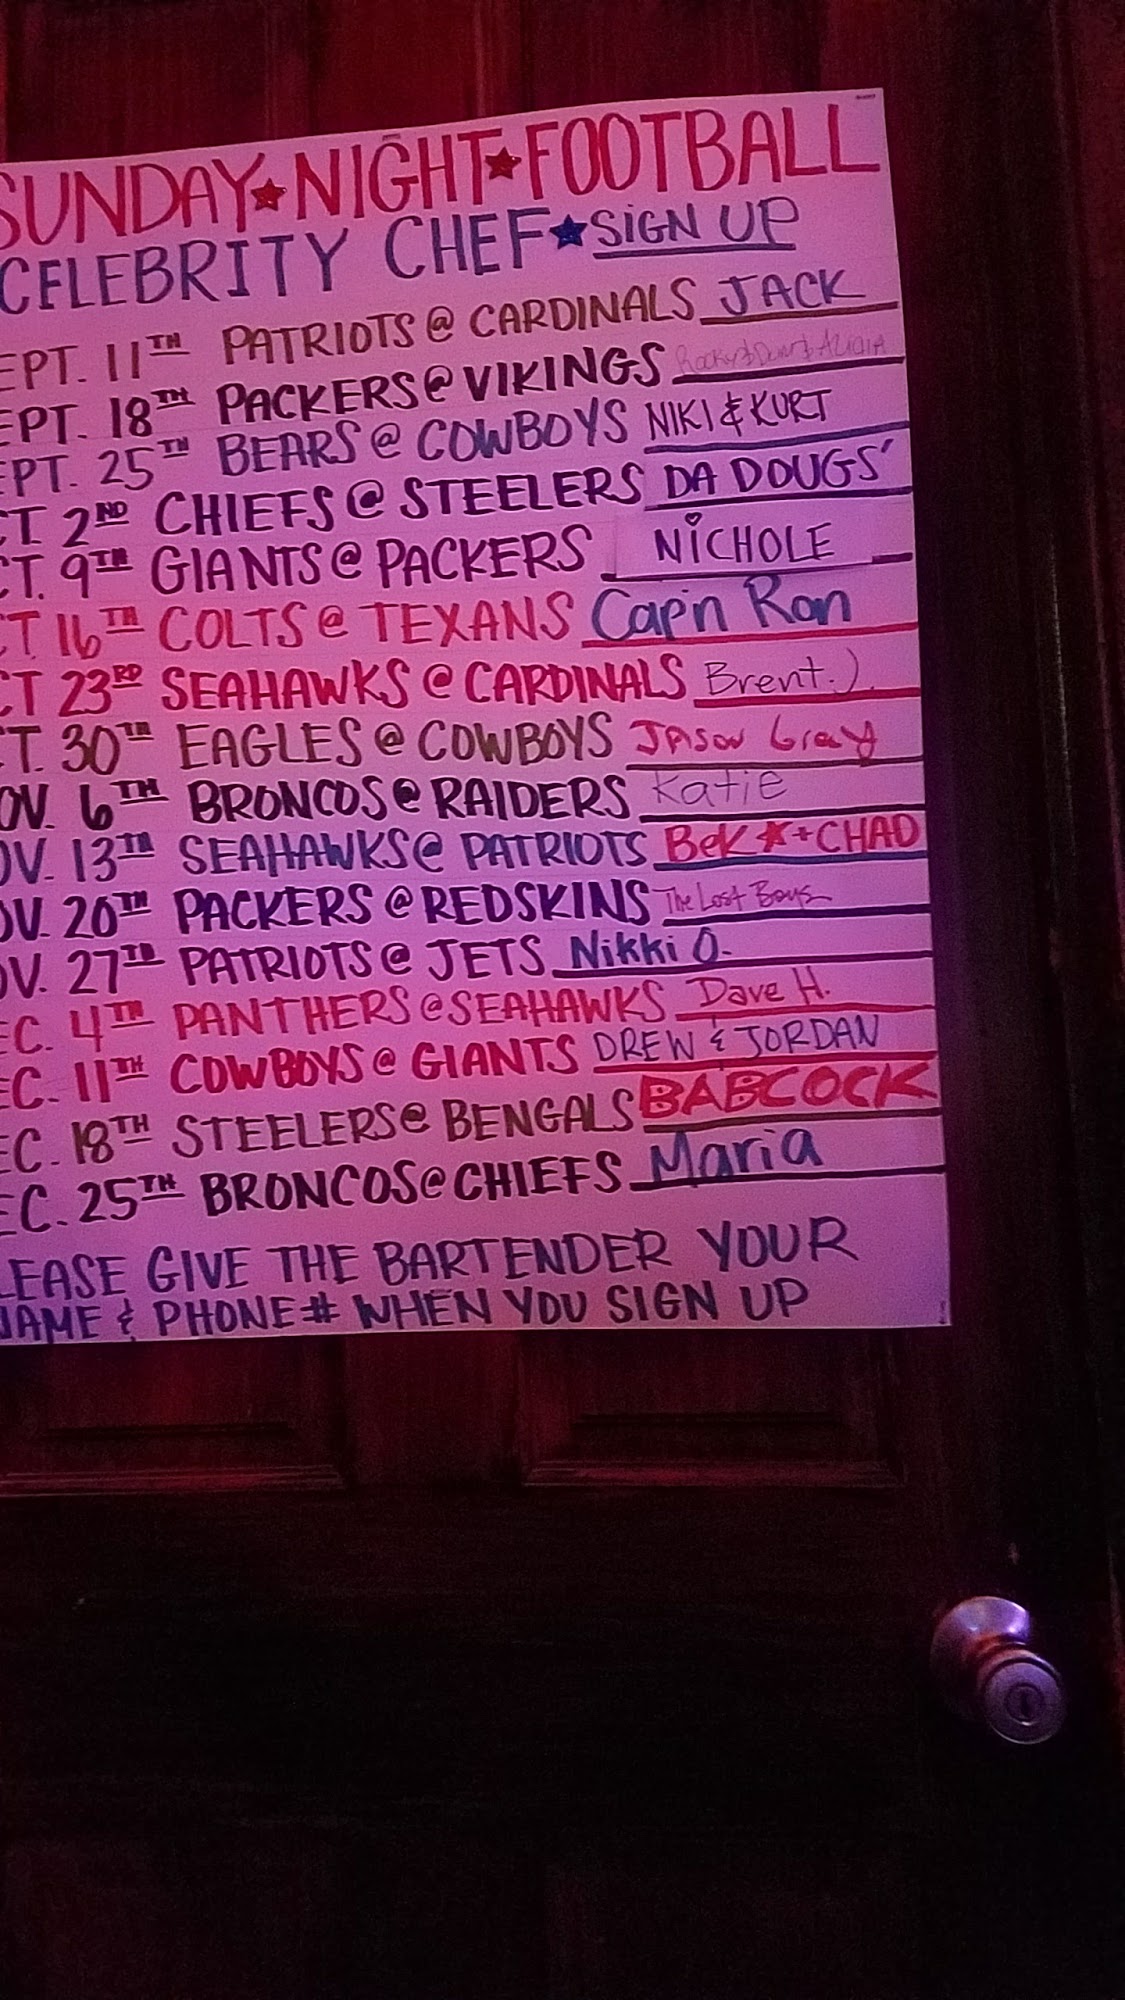 SUNDAY★NIGHT★FOOTBALL
CELEBRITY CHEF★SIGN UP
EPT. 11TH PATRIOTS @ CARDINALS JACK
EPT. 18TH PACKERS @ VIKINGS
EPT. 25TH BEARS @ COWBOYS NIKI & KURT
CT. 2ND CHIEFS @ STEELERS DA DOUGS'
CT. 9TH GIANTS @ PACKERS NICHOLE
CT 16TH COLTS @ TEXANS Cap'n Ron
CT 23RD SEAHAWKS @ CARDINALS Brent :)
CT. 30TH EAGLES @ COWBOYS Jason Gray
OV. 6TH BRONCOS @ RAIDERS Katie
OV. 13TH SEAHAWKS @ PATRIOTS BeK ★ + CHAD
OV. 20TH PACKERS @ REDSKINS The Lost Boys
OV. 27TH PATRIOTS @ JETS Nikki O.
EC. 4TH PANTHERS @ SEAHAWKS Dave H.
EC. 11TH COWBOYS @ GIANTS DREW & JORDAN
EC. 18TH STEELERS @ BENGALS BABCOCK
EC. 25TH BRONCOS @ CHIEFS Maria
LEASE GIVE THE BARTENDER YOUR
NAME & PHONE # WHEN YOU SIGN UP